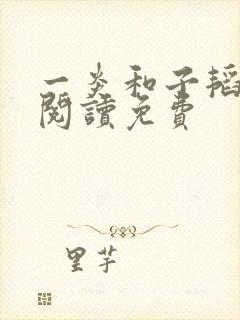 一炎和子韬
閱讀免費
里芋